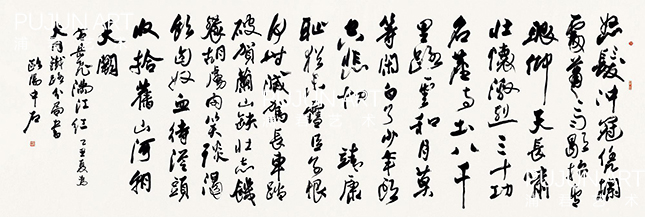 怒髮沖冠憑欄
處蕭蕭雨歇抬望
眼仰天長嘯
壯懷激烈三十功
名塵與土八千
里路雲和月莫
等閑白了少年頭
空悲切 靖康
恥猶未雪臣子恨
何時滅駕長車踏
破賀蘭山缺壯志飢
餐胡虜肉笑談渴
飲匈奴血待從頭
收拾舊山河朝
天闕
岳飛滿江紅 乙丑夏為
大同鐵路分局書
歐陽中石
PUJUN ART
PUJUN ART